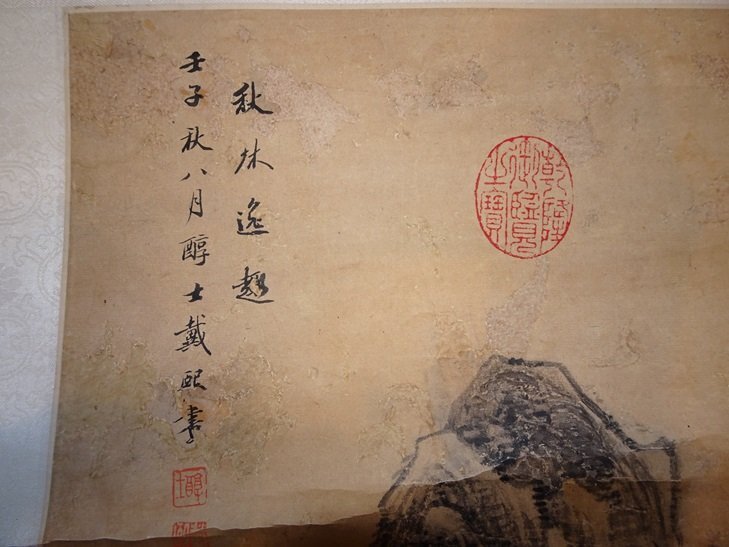 秋林逸趣
壬子秋八月醇士戴熙書
醇士
乾隆
御覽
之寶